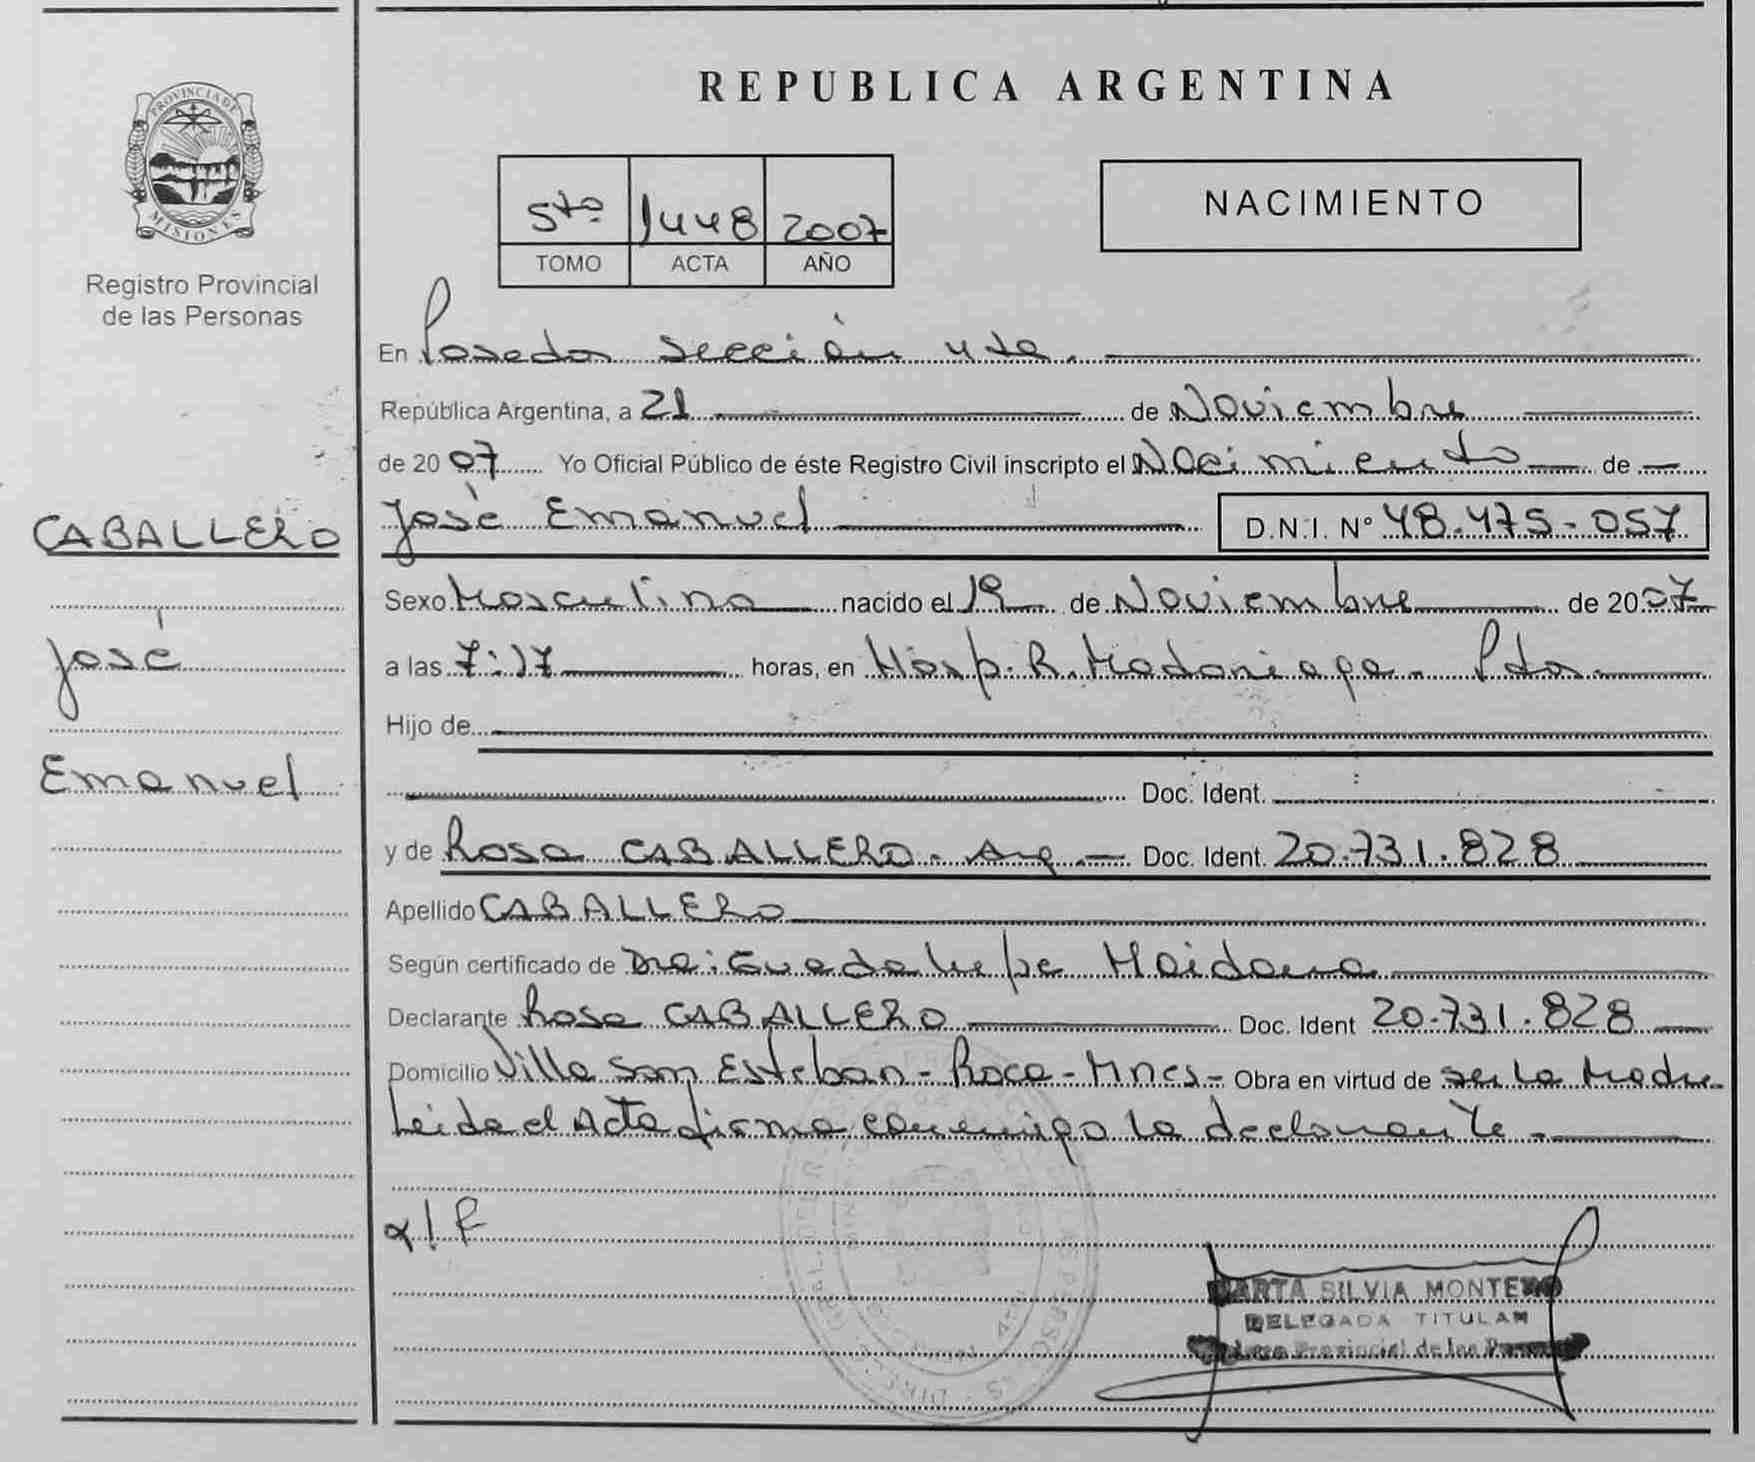 REPUBLICA ARGENTINA
PROVINCIA DE MISIONES
Registro Provincial
de las Personas
5to 1448 2007
TOMO ACTA AÑO
NACIMIENTO
En Posadas sección 4ta.
República Argentina, a 21 de Noviembre
de 2007 Yo Oficial Público de éste Registro Civil inscripto el Nacimiento de
CABALLERO
José Emanuel D.N.I. Nº 48.475-057
Sexo Masculino nacido el 19 de Noviembre de 2007
José
a las 7:17 horas, en Hosp. R. Madariaga - Pdas.
Hijo de
Emanuel
Doc. Ident.
y de Rosa CABALLERO. Arg. Doc. Ident. 20.731.828
Apellido CABALLERO
Según certificado de Dra: Guadalupe Maidana
Declarante Rosa CABALLERO Doc. Ident 20.731.828
Domicilio Villa San Esteban - Roca - Mnes - Obra en virtud de ser la Madre
Leida el Acta firma conmigo la declarante.
MARTA SILVIA MONTERO
DELEGADA TITULAR
Provincial de las